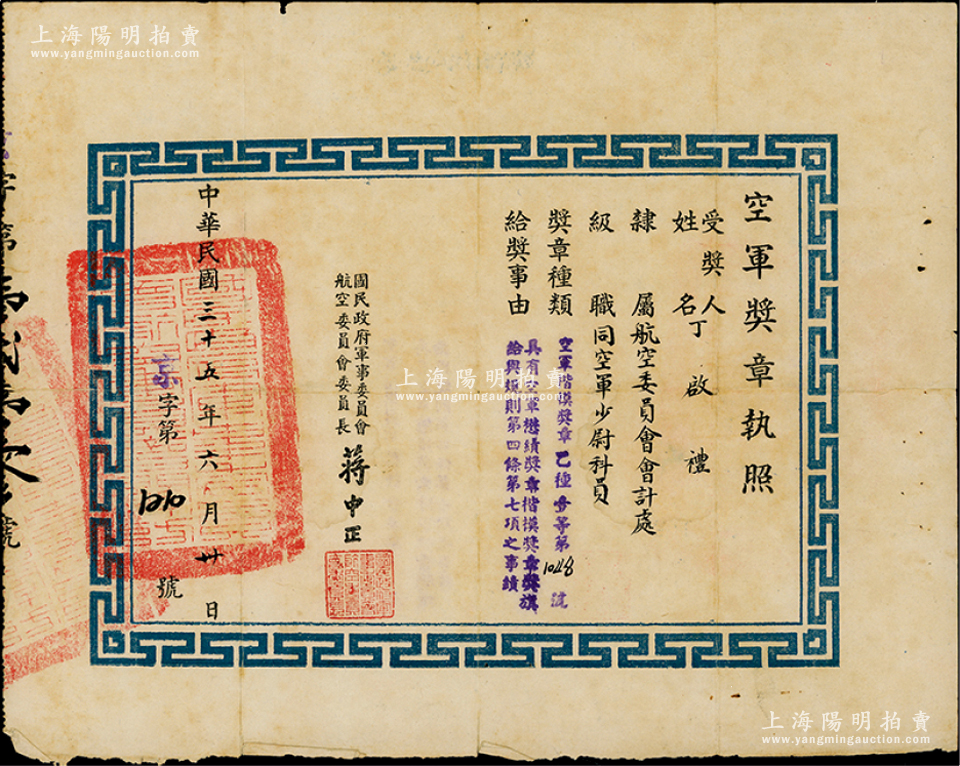 上海陽明拍賣
www.yangmingauction.com
空軍獎章執照
受獎人
姓名丁啟禮
隸屬航空委員會會計處
級職同空軍少尉科員
獎章種類 空軍楷模獎章乙種叁等第1048號
給獎事由 具有空軍懋績獎章楷模獎章獎旗
給與規則第四條第七項之事績
國民政府軍事委員會
航空委員會委員長 蔣中正
中華民國三十五年六月卅日
京字第1210號
字第
號
上海陽明拍賣
www.yangmingauction.com
上海陽明拍賣
www.yangmingauction.com